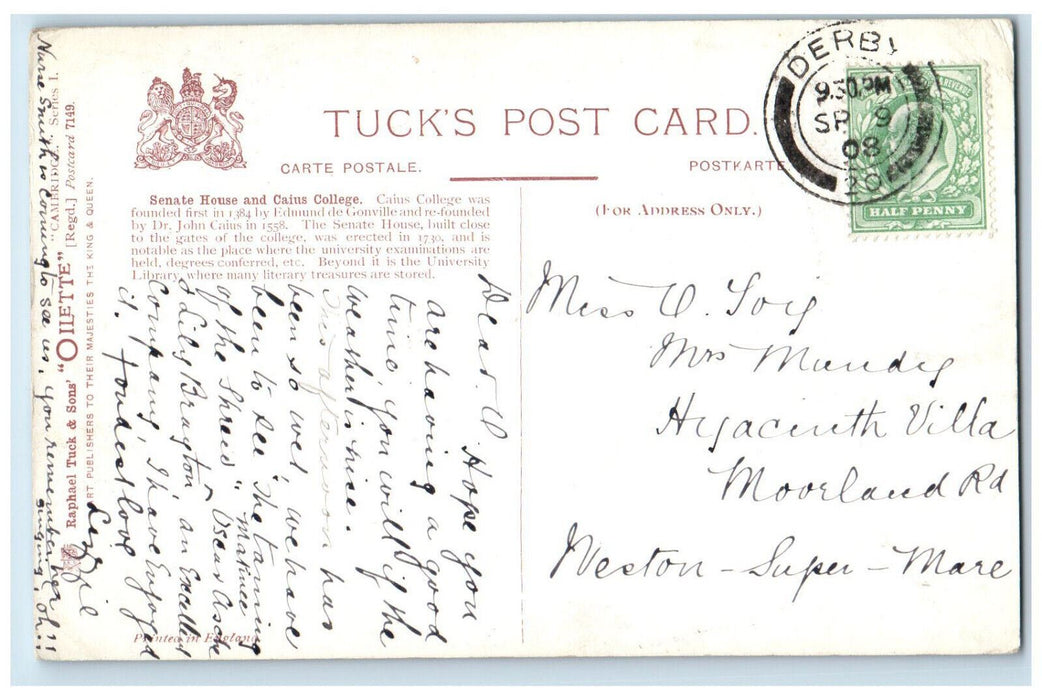 TUCK'S POST CARD.
CARTE POSTALE.
POSTKARTE
(FOR ADDRESS ONLY.)
Senate House and Caius College. Caius College was
founded first in 1384 by Edmund de Gonville and re-founded
by Dr. John Caius in 1558. The Senate House, built close
to the gates of the college, was erected in 1730, and is
notable as the place where the university examinations are
held, degrees conferred, etc. Beyond it is the University
Library, where many literary treasures are stored.
DERBY
9.30 PM
SP 9
08
20
REVENUE
HALF PENNY
Miss O.
Mrs Mundy
Hyacinth Villa
Moorland Rd
Weston-Super-Mare
Dear O Hope you
are having a good
time, you will if the
weather is nice.
This afternoon has
been so wet, we have
been to see "The taming
Matinee
of the Shrew" Oscar Asche
& Lily Brayton an Excellent
Company, I have Enjoyed
it. fondest love
Nurse Smith is coming to see us, you remember her!!
singing, Oh!!
"CAMBRIDGE." Series I.
Raphael Tuck & Sons' "OILETTE" [Regd.] Postcard 7149.
ART PUBLISHERS TO THEIR MAJESTIES THE KING & QUEEN.
Printed in England